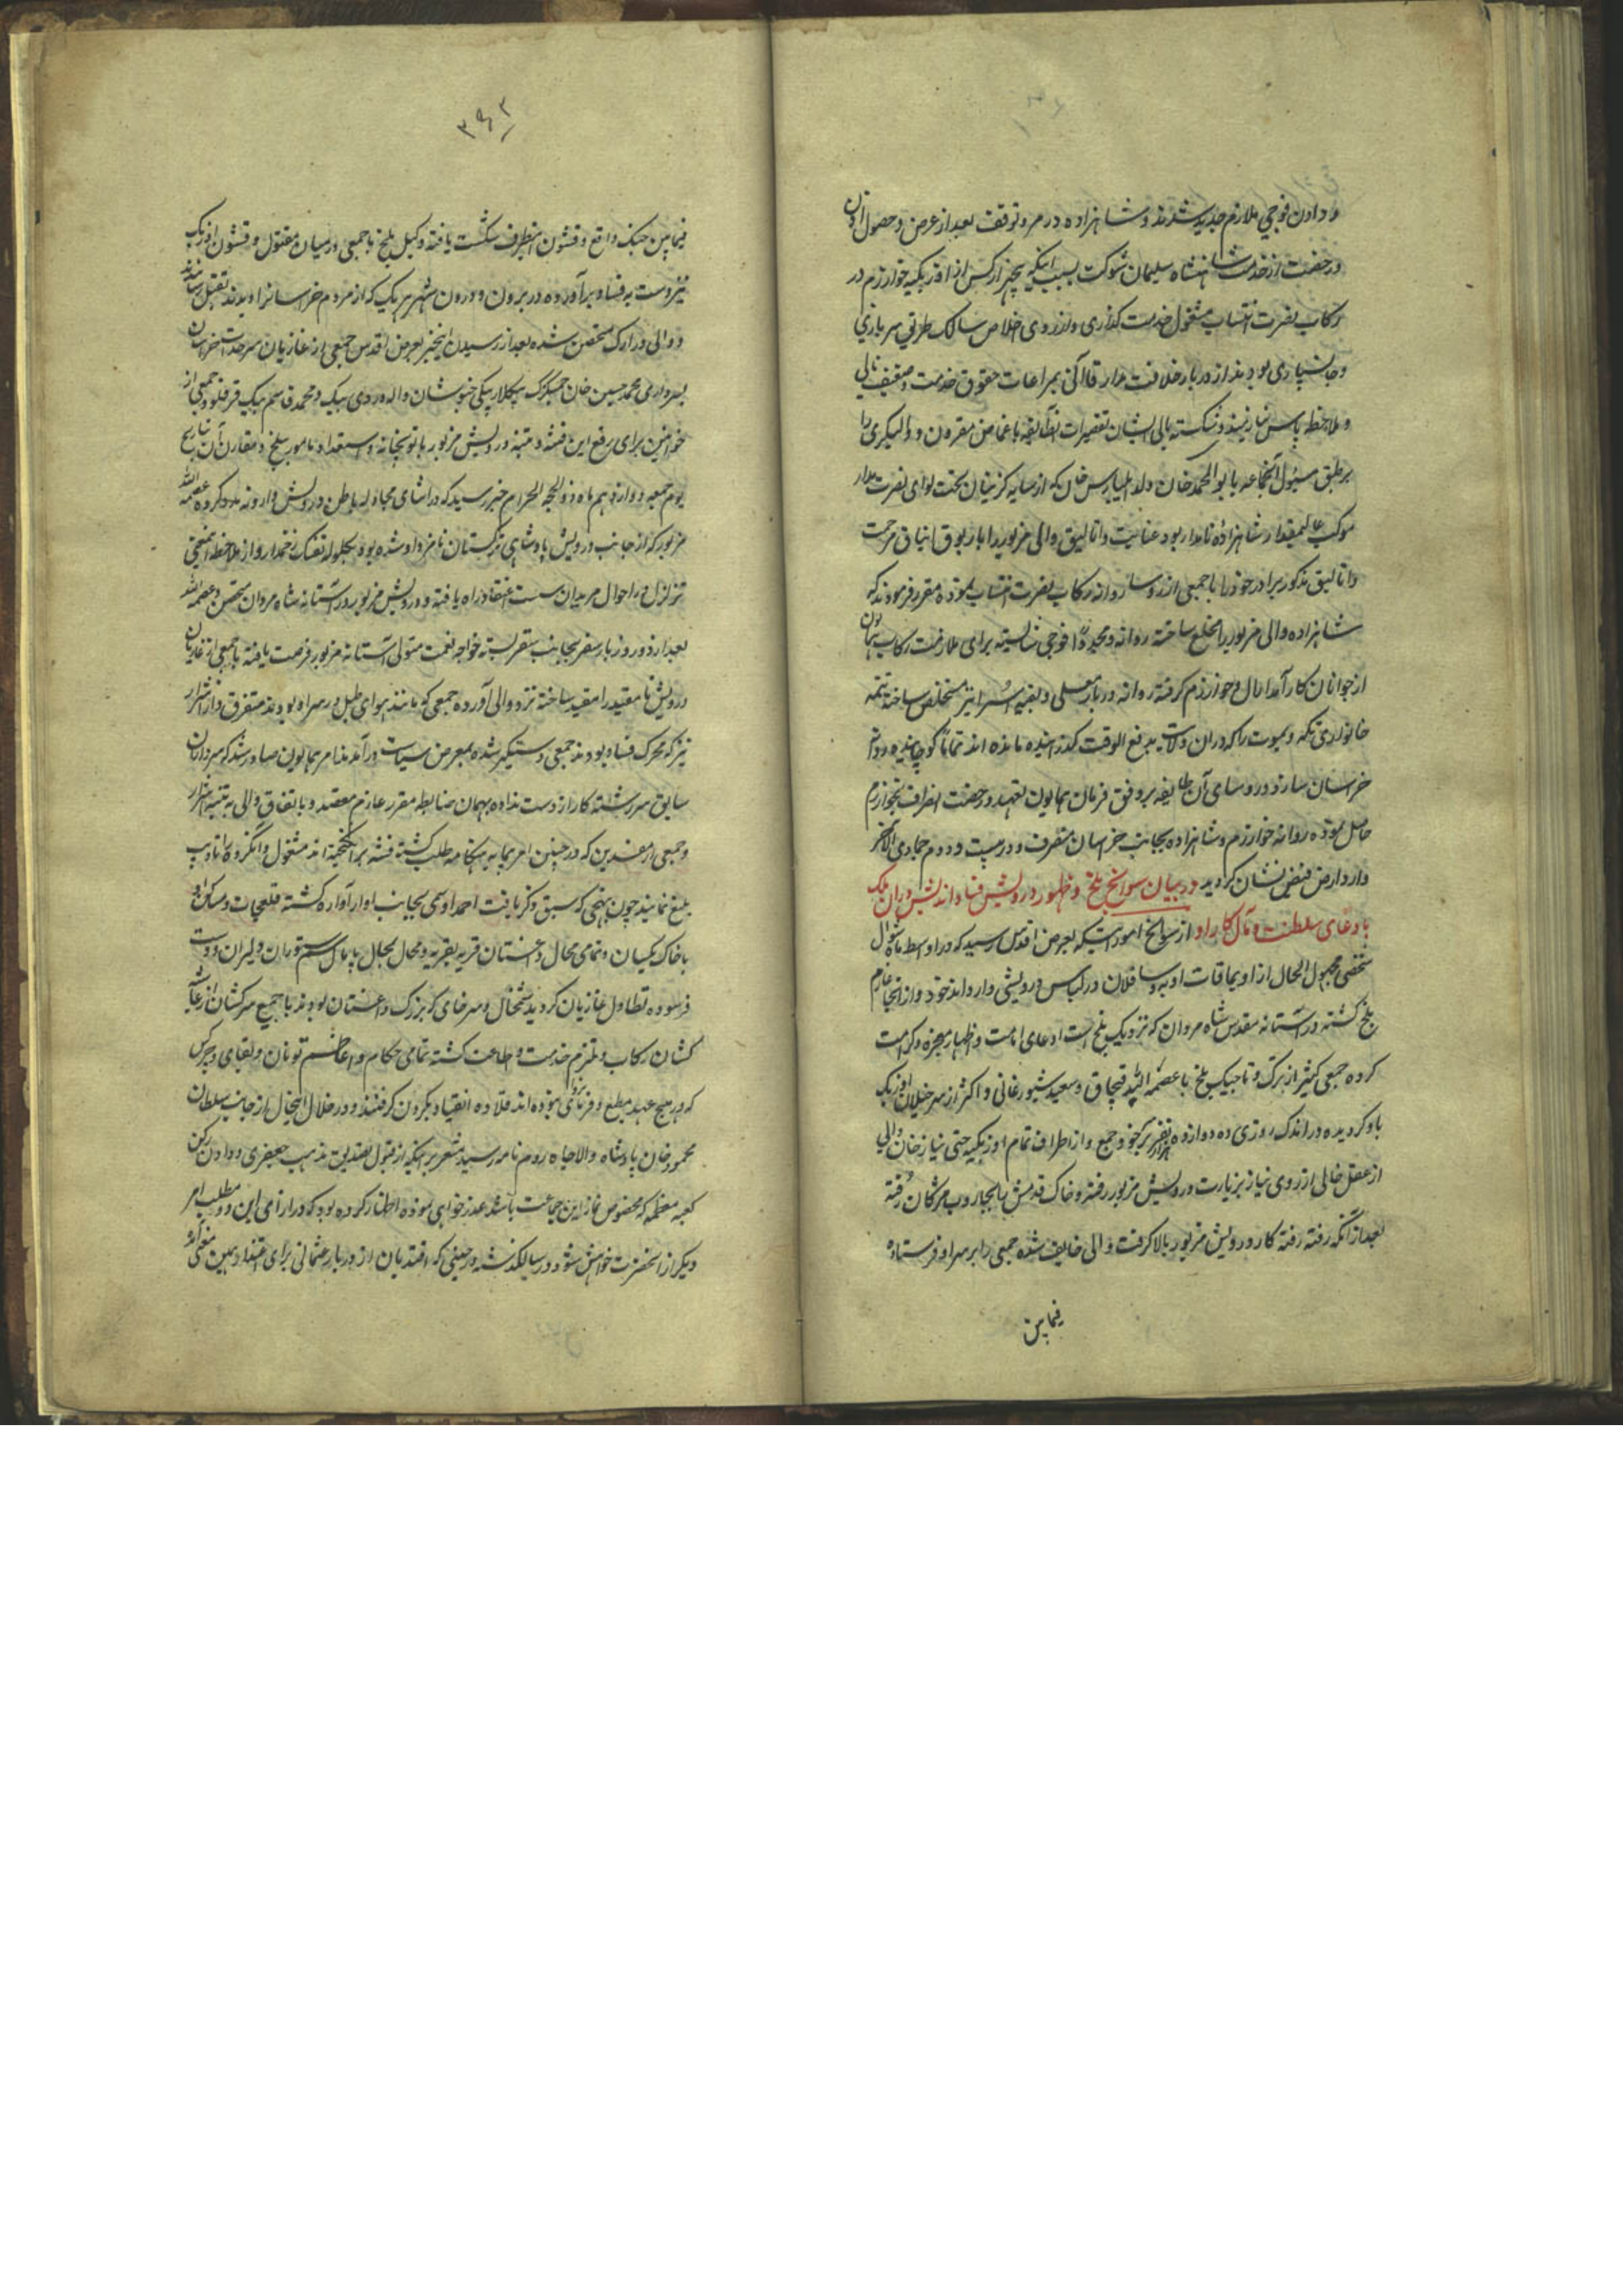 و دادن فوجی ملازم جدید شدند و شاهزاده در مرو توقف بعد از عرض و حصول اذن
و رخصت از خدمت شاهنشاه سلیمان شوکت بسبب اینکه چند هزار کس از اوزبکیه خوارزم در
رکاب نصرت انتساب مشغول خدمت گذاری و از روی اخلاص سالک طریق سربازی
و جانسپاری بودند از دربار خلافت مدار قاآنی بمراعات حقوق خدمت
و ملاحظه پاس نیازمندی و شکسته بالی ایشان تقصیرات آنطایفه باغماض مقرون و والیگری را
بر طبق مسئول آنجماعه بابوالمحمد خان ولد ایلبارس خان که از سابه گزینان تحت لوای نصرت مدار
موکب شاهزاده نامدار بود عنایت و اتالیق والی مزبور را با ایناق مرحمت
و اتالیق مذکور برادر خود را با جمعی از روسا روانه رکاب نصرت انتساب نموده مقرر فرمودند که
شاهزاده والی مزبور را مخلع ساخته روانه و مجددا فوجی شایسته برای ملازمت رکاب همایون
از جوانان کارآمد ارال و خوارزم گرفته روانه دربار معلی و بقیه اسرا نیز مستخلص ساخته تتمه
خانواری تکه و یموت را که در آن ولات بدفع الوقت گذرانیده مانده اند تماما کوچانیده روانه
خراسان سازد و روسای آن طایفه بر وفق فرمان همایون تعهد و رخصت انصراف بخوارزم
حاصل نموده روانه خوارزم و شاهزاده بجانب خراسان منصرف و در بیست و دوم جمادی الاخر
وارد ارض فیض نشان گردید در بیان سوانح بلخ و ظهور درویش فساد اندیش در آن ملک
با دعای سلطنت و مآل کار او از سوانح امور اینکه بعرض اقدس رسید که در اواسط ماه شوال
شخصی مجهول الحال از اویماقات اوبه و ساقلان در لباس درویشی وارد اندخود و از آنجا عازم
بلخ گشته در آستانه مقدس شاه مردان که نزدیک بلخ است ادعای امامت و اظهار معجزه و کرامت
کرده جمعی کثیر از ترک و تاجیک بلخ با عصمة الله قپچاق و سعید شبورغانی و اکثر از سرخیلان اوزبک
باو گرویده در اندک روزی ده دوازده هزار نفر بر خود جمع و از اطراف تمام اوزبکیه حتی نیاز خان والی
از عقل خالی از روی نیاز بزیارت درویش مزبور رفته و خاک قدمش بجاروب مژگان رفته
بعد از آنکه رفته رفته کار درویش مزبور بالا گرفت والی خایف شده جمعی را بر سر او فرستاده
فیمابین
۳۶۲
فیمابین جنگ واقع و قشون اینطرف شکست یافته وکیل بلخ با جمعی در میان مقتول و قشون اوزبک
نیز دست بفساد برآورده در برون و درون شهر هر یک که از مردم خراسان را دیدند بقتل رسانند
و والی در ارک متحصن شده بعد از رسیدن اینخبر بعرض اقدس جمعی از غازیان سرحدات خراسان
بسرداری محمد حسین خان بیگلربیگی خبوشان و الله وردی بیک و محمد قاسم بیک قرقلو و جمعی از
خوانین برای رفع این فتنه و تنبیه درویش مزبور با توپخانه و استعداد مامور بلخ و مقارن آن بتاریخ
یوم جمعه دوازدهم ماه ذوالحجه الحرام خبر رسید که در اثنای مجادله باطن درویش وارونه مدد کرده عصمة الله
مزبور که از جانب درویش پادشاهی ترکستان نامزد او شده بود بگلوله تفنگ زخمدار و از ملاحظه اینمعنی
تزلزل در احوال مریدان سست اعتقاد راه یافته و درویش مزبور در آستانه شاه مردان متحصن و عصمة الله
بعد از دو روز بار سفر بجانب سقر بسته خواجه نعمت متولی آستانه مزبور فرصت یافته با جمعی از غازیان
درویش نامقید را مقید ساخته نزد والی آورده جمعی که مانند هوای طبل در سر او بودند متفرق و از اشرار
نیز که محرک فساد بودند جمعی دستگیر شده بمعرض سیاست درآمدند امر همایون صادر شد که سرداران
سابق سررشته کار از دست نداده بهمان ضابطه مقرر عازم مقصد و باتفاق والی به تنبیه اشرار
و جمعی از مفسدین که در چنین امر بیجا هنگامه طلب گشته فتنه برانگیخته اند مشغول و آنگروه را تادیب
بلیغ نمایند چون بنهجی که سبق ذکر یافت احمد اوسمی بجانب اوار آواره گشته قلعجات و مساکن او
با خاک یکسان و تمامی محال داغستان قریه بقریه و محال بمحال پایمال سم ستوران و لیران و دست
فرسوده تطاول غازیان گردید شمخال و سرخای که بزرگ داغستان بودند با جمیع سرکشان از غاشیه
کشان رکاب و ملتزم خدمت و اطاعت گشته تمامی حکام و اعاظم قومات و بقایای چرکس
که در هیچ عهد مطیع و فرمانروائی نبوده اند قلاده انقیاد بگردن گرفتند و در خلال اینحال از جانب سلطان
محمود خان پادشاه والاجاه روم نامه رسید مشعر بر اینکه از قبول تصدیق مذهب جعفری و دادن رکن
کعبه معظمه که مخصوص نماز این جماعت باشد عذرخواهی نموده اظهار کرده بود که در ازای این دو مطلب امر
دیگر از آنحضرت خواهش شود و در سال گذشته در حینی که افندیان از دربار عثمانی برای همین معنی آمده